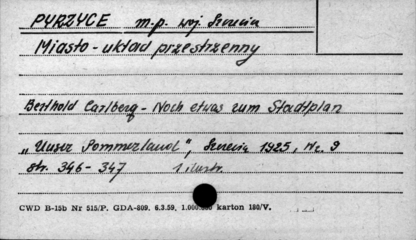 PYRZYCE m.p. woj. Szczecin
Miasto - układ przestrzenny
Berthold Carlberg - Noch etwas zum Stadtplan
„Unser Pommerland", Szczecin 1925, Nr. 9
str. 346-347 1 ilustr.
CWD B-15b Nr 515/P. GDA-809. 6.3.59. karton 180/V.